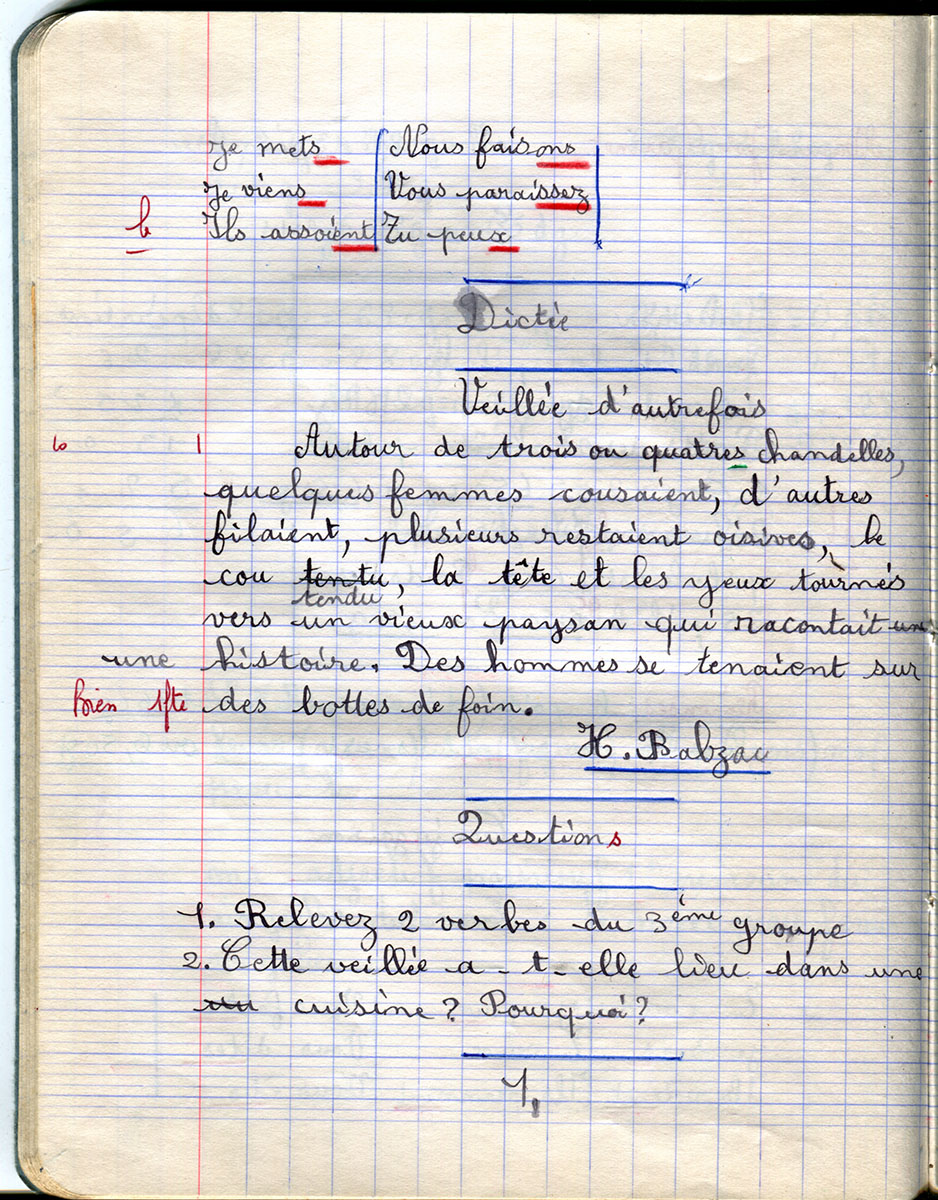 Je mets Nous faisons
Je viens Vous paraissez
b Ils assoient Tu peux
Dictée
Veillée d'autrefois
10 1 Autour de trois ou quatres chandelles,
quelques femmes cousaient, d'autres
filaient, plusieurs restaient oisives, le
cou tentu, la tête et les yeux tournés
tendu
vers un vieux paysan qui racontait une
une histoire. Des hommes se tenaient sur
Bien 1fte des bottes de foin.
H. Babzac
Questions
1. Relevez 2 verbes du 3ème groupe
2. Cette veillée a-t-elle lieu dans une
cuisine ? Pourquoi ?
1,